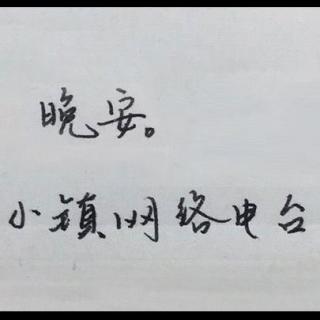 晚安。
小镇网络电台